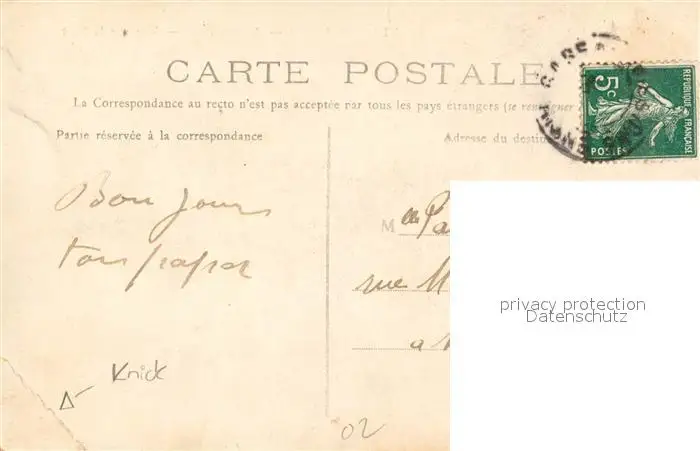 CARTE POSTALE
La Correspondance au recto n'est pas acceptée par tous les pays étrangers (se renseigner
Partie réservée à la correspondance
Adresse du destin
5c
REPUBLIQUE FRANÇAISE
POSTES
GARE
Bon jour
ton papa
M
rue M
a
privacy protection
Datenschutz
Knick
02